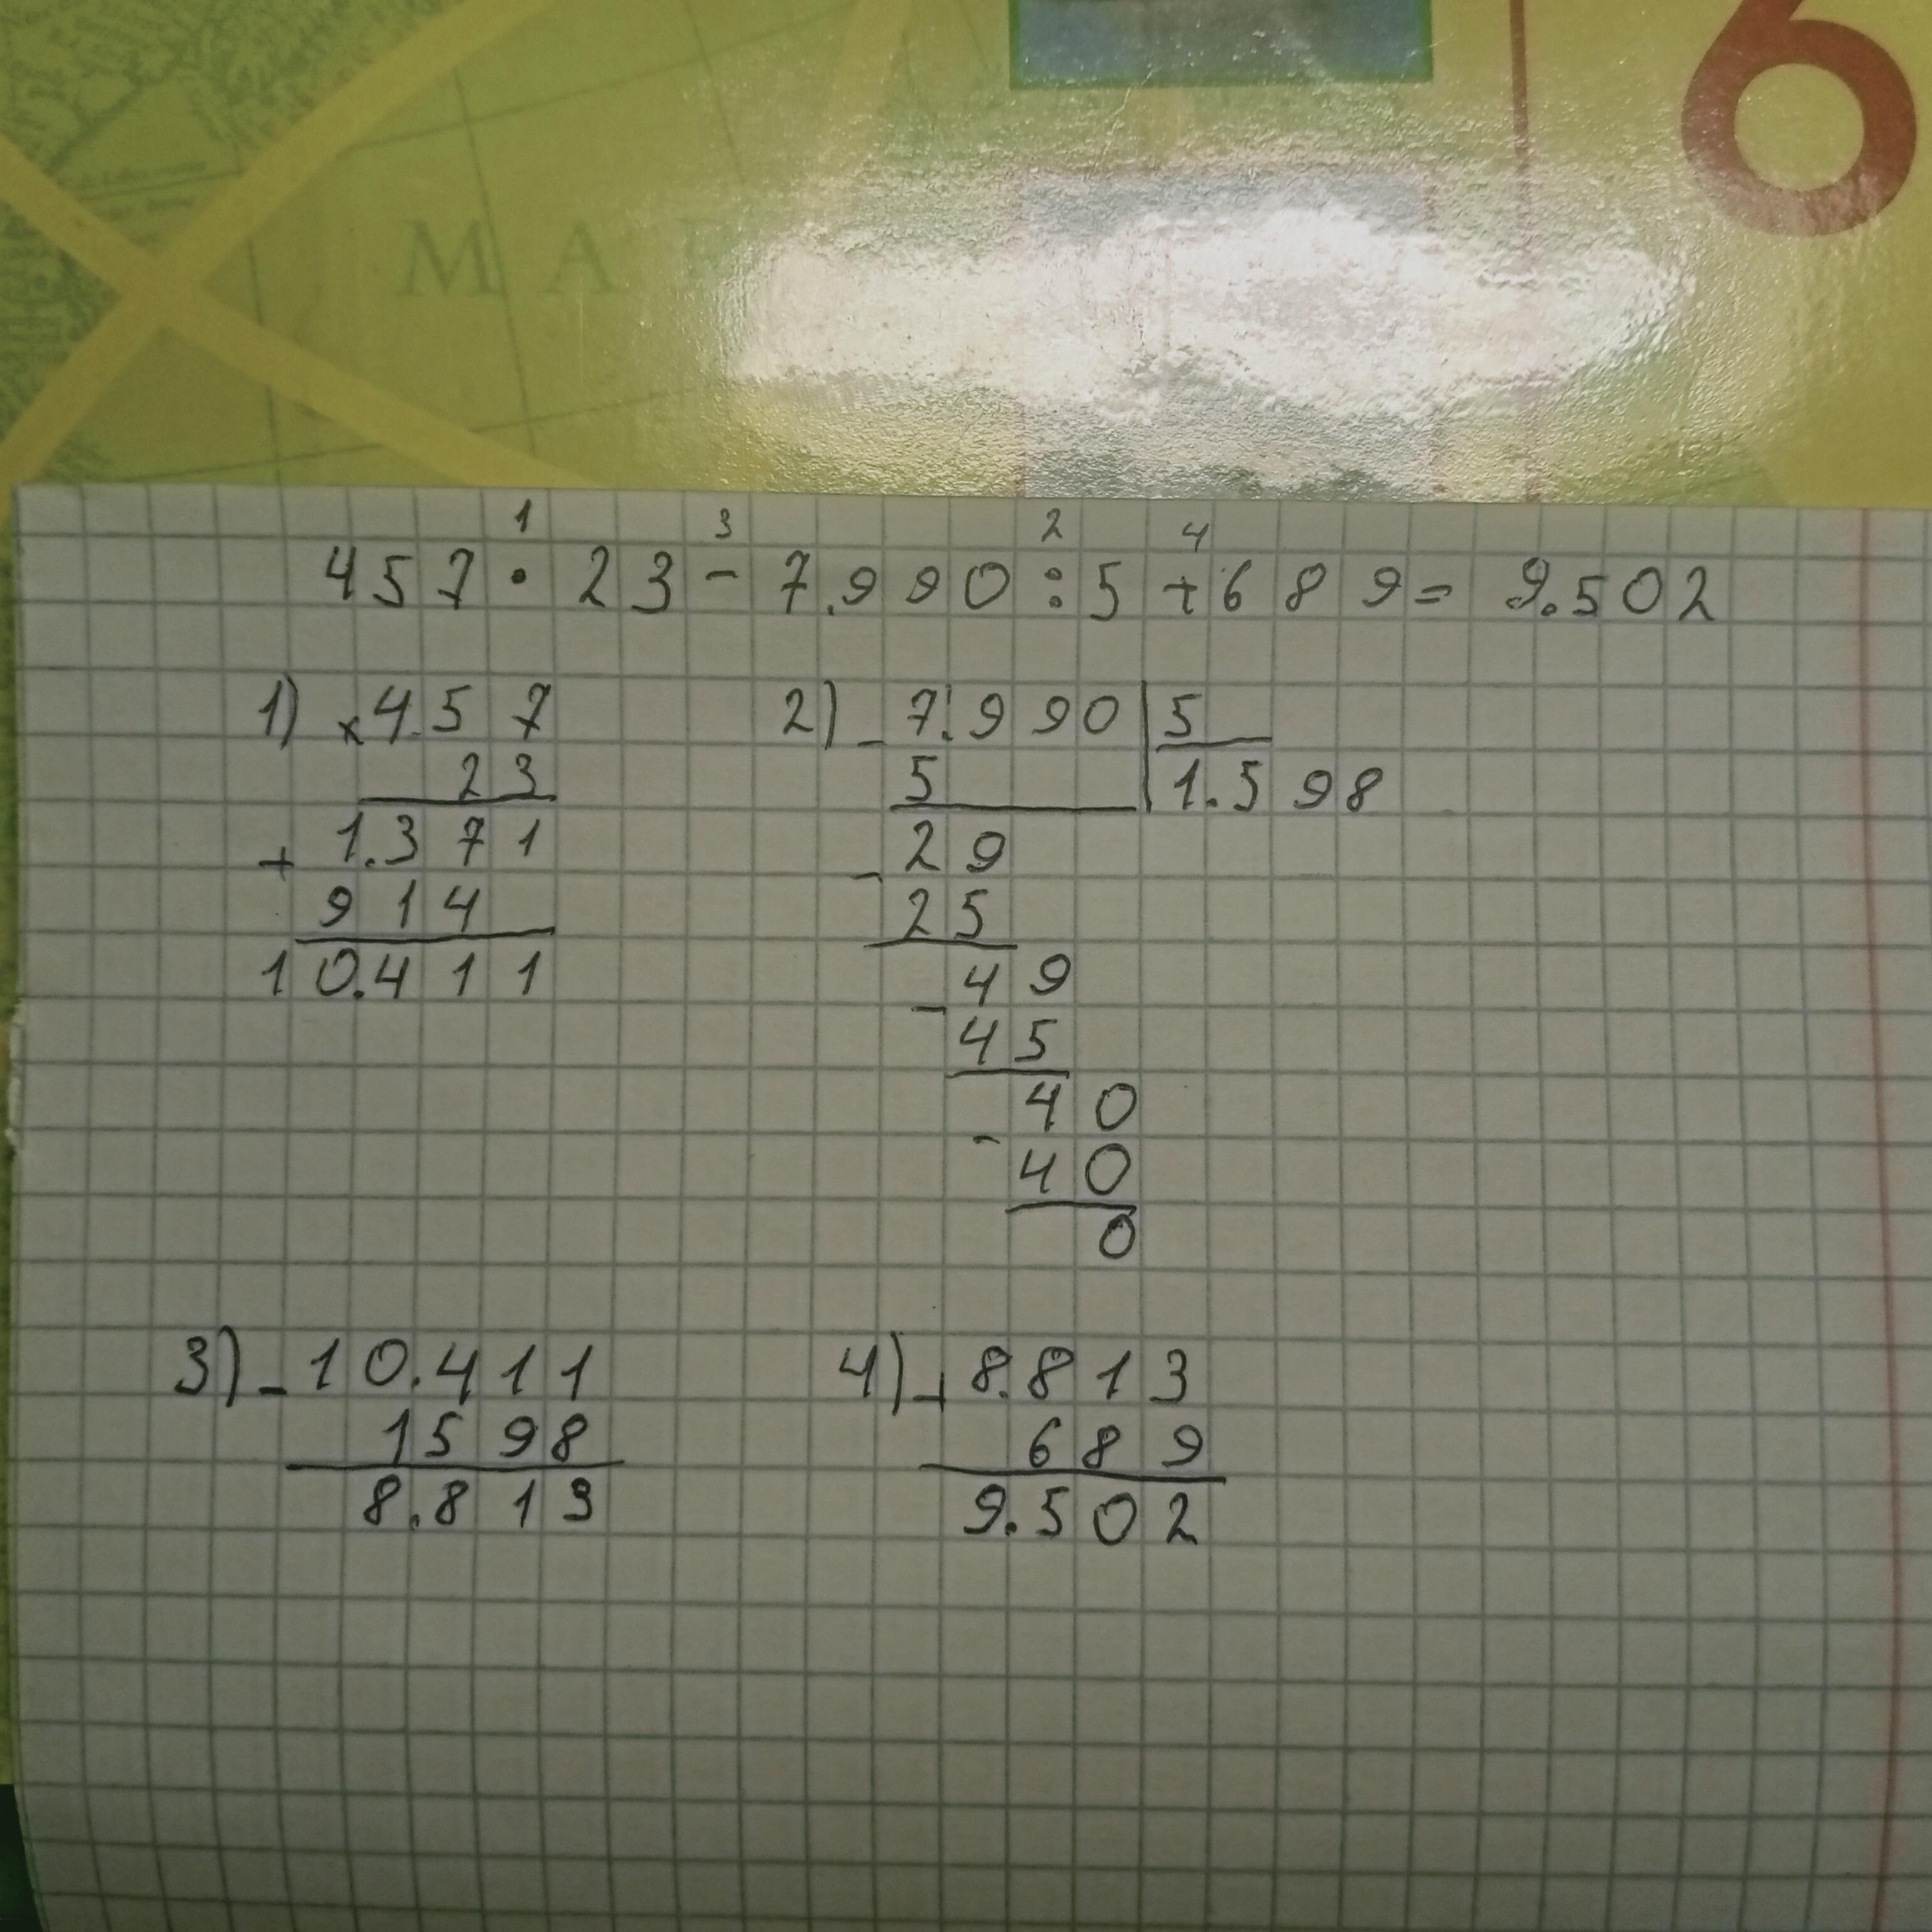 6
MA
1 3 2 4
457 · 23 - 7.990 : 5 + 689 = 9.502
1) × 4.57
23
+ 1.371
914
10.411
2) - 7.990 | 5
5 | 1.598
- 29
25
- 49
45
- 40
40
0
3) - 10.411
1598
8.813
4) + 8.813
689
9.502